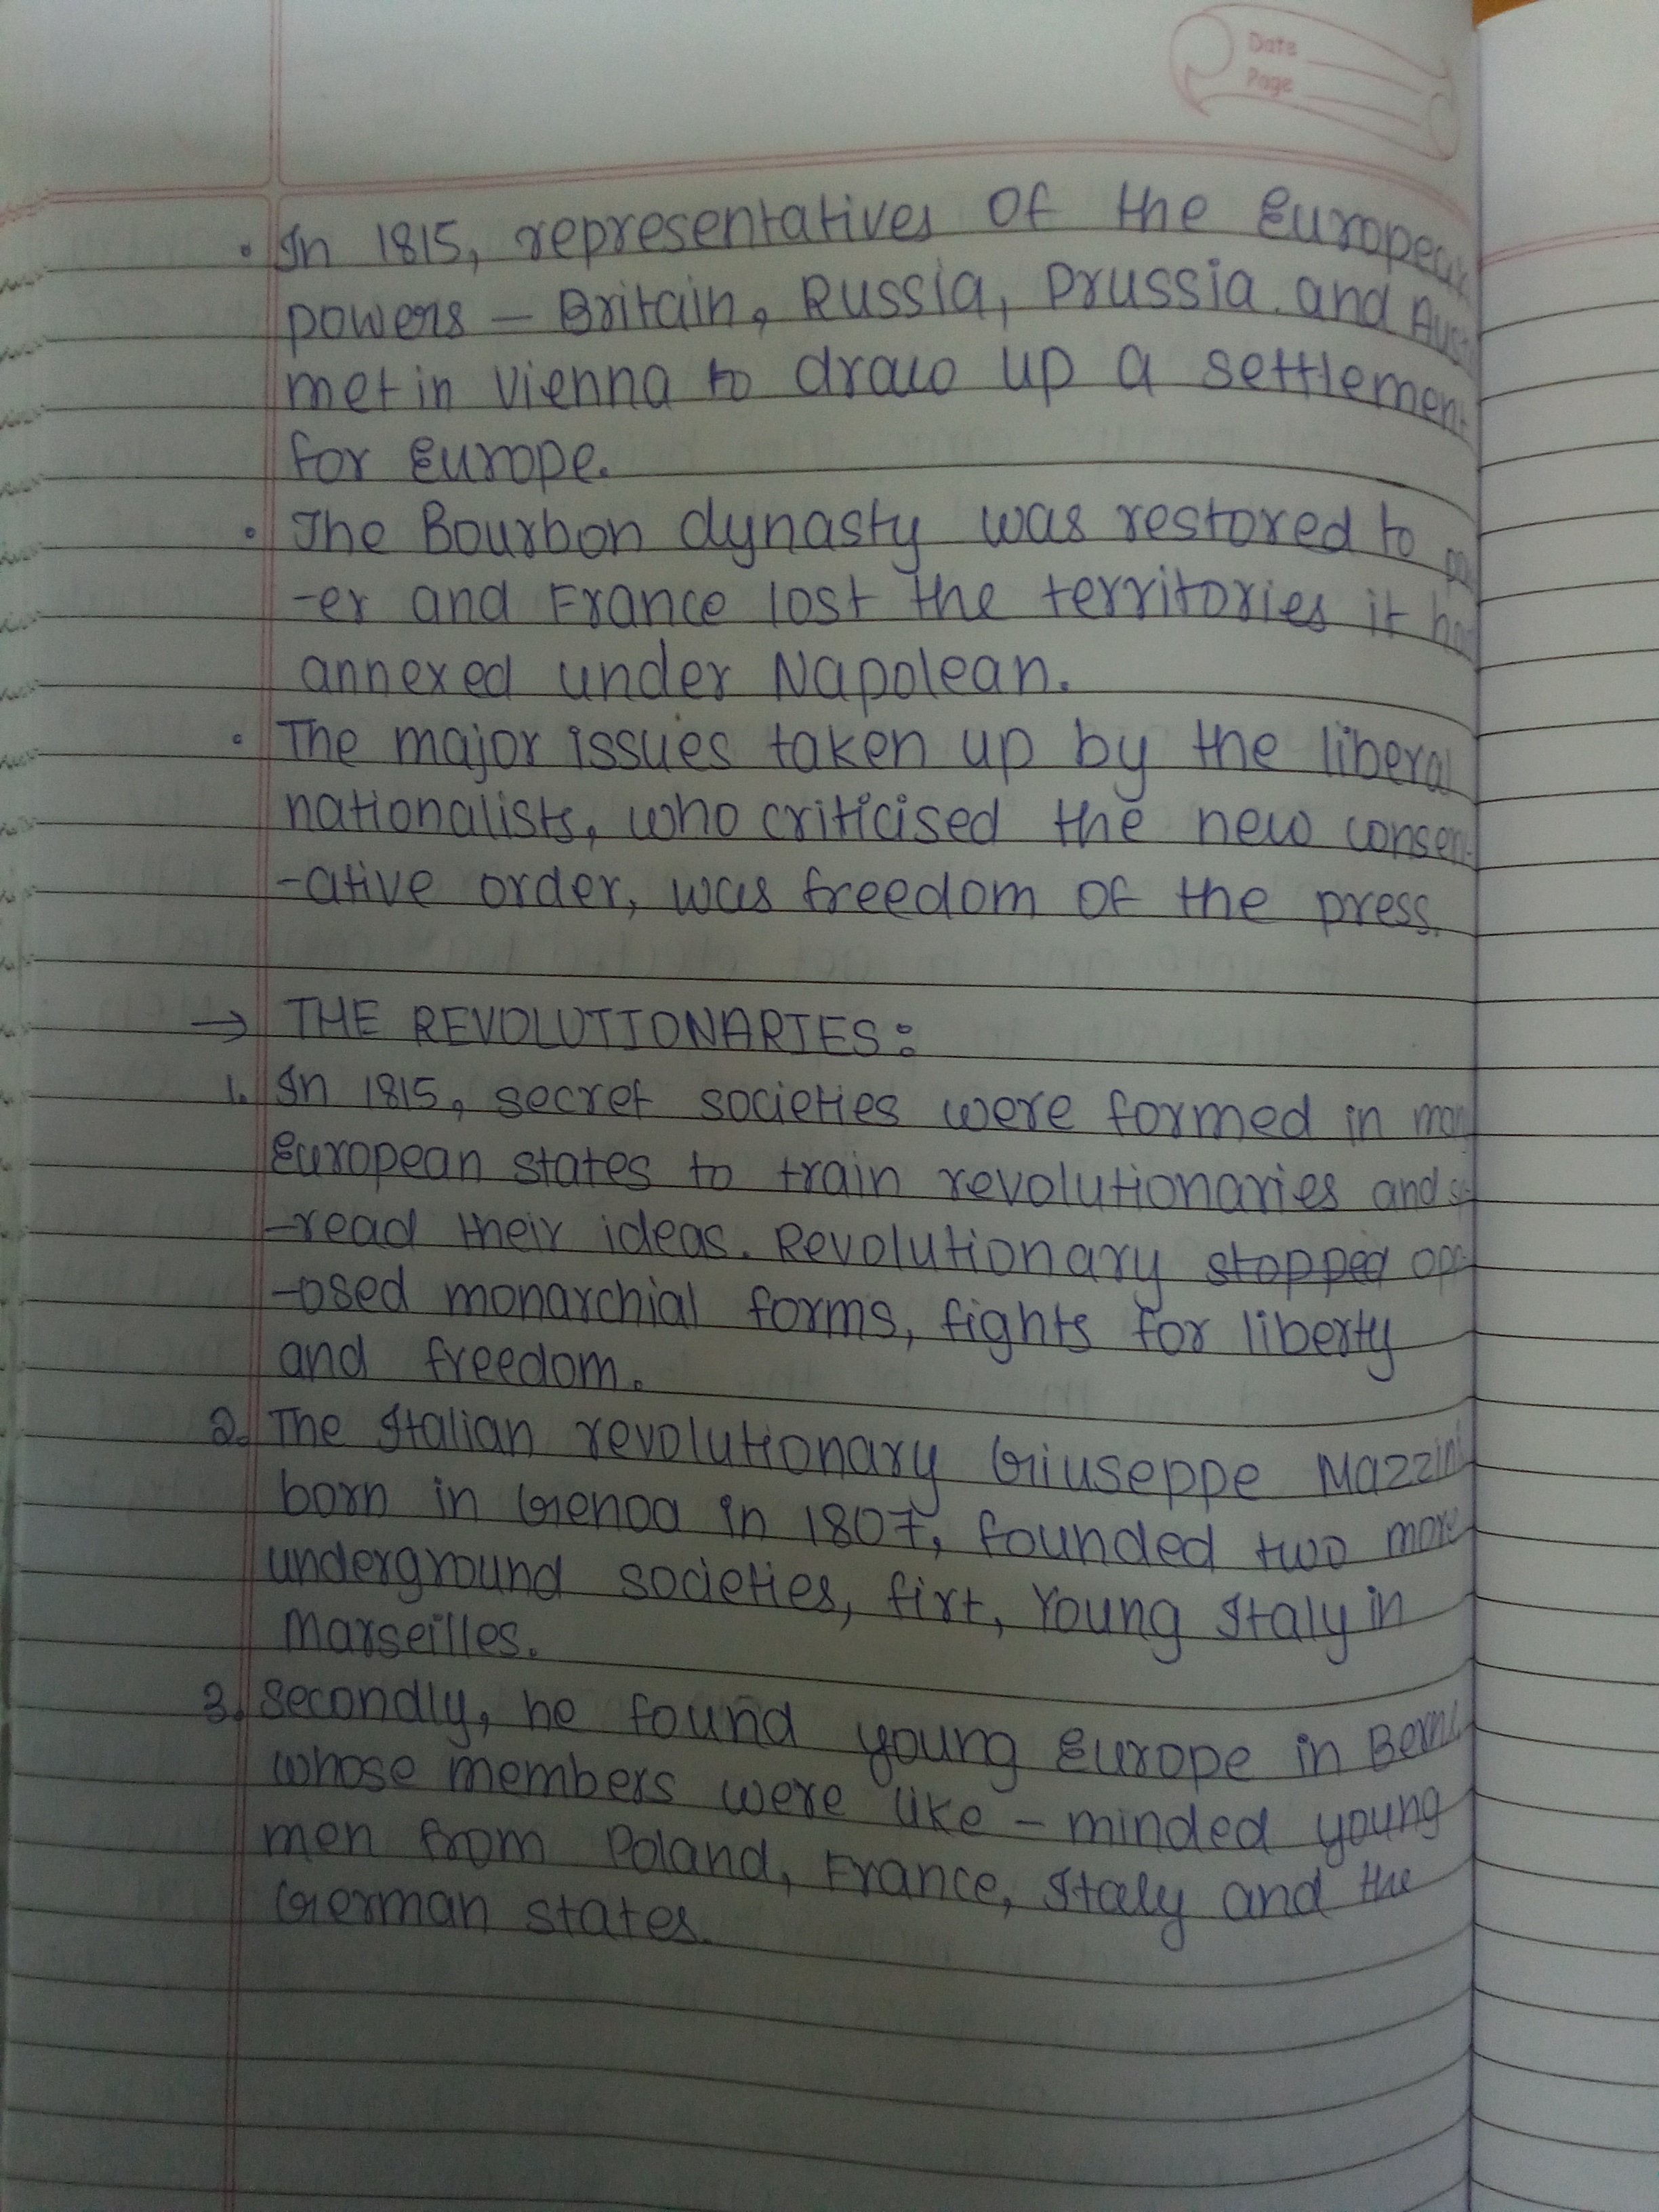 Date
Page
• In 1815, representatives of the European
powers - Britain, Russia, Prussia and
met in Vienna to draw up a settlement
for Europe.
• The Bourbon dynasty was restored to
-er and France lost the territories it had
annexed under Napolean.
• The major issues taken up by the liberal
nationalists, who criticised the new conserv-
-ative order, was freedom of the press.
→ THE REVOLUTIONARIES:
1. In 1815, secret societies were formed in many
European states to train revolutionaries and
-read their ideas. Revolutionary stopped opp-
-osed monarchial forms, fights for liberty
and freedom.
2. The Italian revolutionary Giuseppe Mazzini
born in Genoa in 1807, founded two more
underground societies, firt, Young Italy in
Marseilles.
3. Secondly, he found young Europe in Berne
whose members were like - minded young
men from Poland, France, Italy and the
German states.